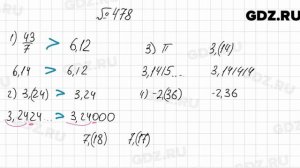 GDZ.RU
№478
1) 43/7 > 6,12
6,14 > 6,12
2) 3,(24) > 3,24
3,2424.. > 3,24000
3) π 3,(14)
3,1415... 3,141414
4) -2,(36) -2,36
7,(18) 7,(17)
GDZ.RU
GDZ.RU